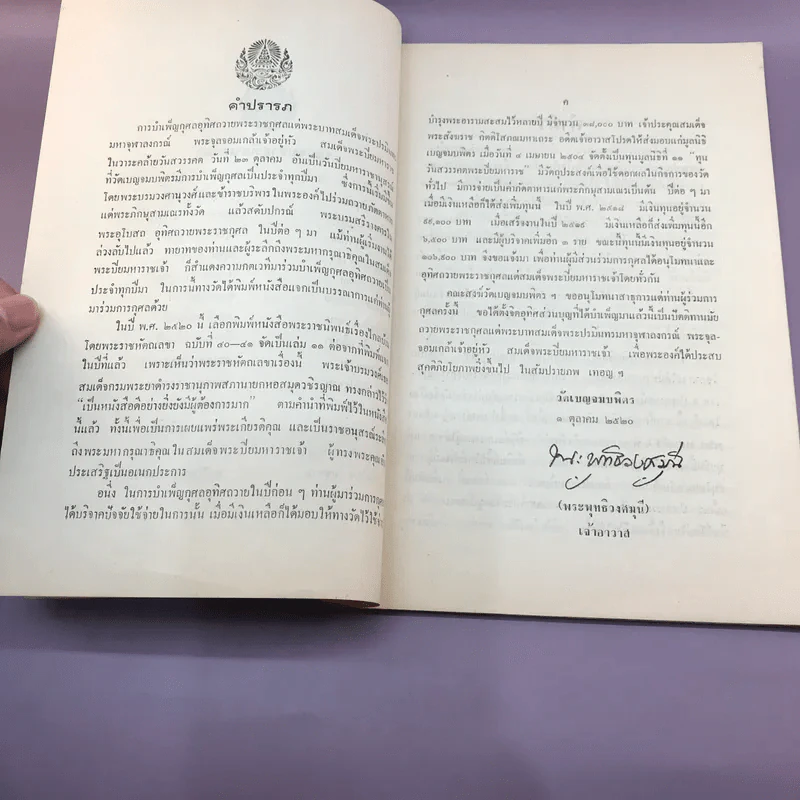 คำปรารภ
การบำเพ็ญกุศลอุทิศถวายพระราชกุศลแด่พระบาทสมเด็จพระปรมิน
มหาจุฬาลงกรณ์ พระจุลจอมเกล้าเจ้าอยู่หัว สมเด็จพระปิยมหาราช
ในวาระคล้ายวันสวรรคต วันที่ ๒๓ ตุลาคม อันเป็นวันปิยมหาราชานุสรณ์
ที่วัดเบญจมบพิตรมีการบำเพ็ญกุศลเป็นประจำทุกปีมา ซึ่งการนี้เริ่ม
โดยพระบรมวงศานุวงศ์และข้าราชบริพารในพระองค์ไปร่วมถวายภัตตาหาร
แด่พระภิกษุสามเณรทั้งวัด แล้วสดับปกรณ์ พระบรมสรีรางคาร
พระอุโบสถ อุทิศถวายพระราชกุศล ในปีต่อ ๆ มา แม้ท่านผู้เริ่มงาน
ล่วงลับไปแล้ว ทายาทของท่านและผู้ระลึกถึงพระมหากรุณาธิคุณในสมเด็จ
พระปิยมหาราชเจ้า ก็สำแดงความกตเวทีมาร่วมบำเพ็ญกุศลอุทิศถวายเป็น
ประจำทุกปีมา ในการนี้ทางวัดได้พิมพ์หนังสือแจกเป็นบรรณาการแด่ท่าน
มาร่วมการกุศลด้วย
ในปี พ.ศ. ๒๕๒๐ นี้ เลือกพิมพ์หนังสือพระราชนิพนธ์เรื่องไกลบ้าน
โดยพระราชหัตถเลขา ฉบับที่ ๔๐—๔๑ จัดเป็นเล่ม ๑๑ ต่อจากที่พิมพ์แจก
ในปีที่แล้ว เพราะเห็นว่าพระราชหัตถเลขาเรื่องนี้ พระเจ้าบรมวงศ์เธอ
สมเด็จกรมพระยาดำรงราชานุภาพสภานายกหอสมุดวชิรญาณ ทรงกล่าวไว้
“เป็นหนังสือดีอย่างยิ่งยังมีผู้ต้องการมาก” ตามคำนำที่พิมพ์ไว้ในหนังสือ
นี้แล้ว ทั้งนี้เพื่อเป็นการเผยแพร่พระเกียรติคุณ และเป็นราชอนุสรณ์ระลึก
ถึงพระมหากรุณาธิคุณในสมเด็จพระปิยมหาราชเจ้า ผู้ทรงพระคุณ
ประเสริฐเป็นอเนกประการ
อนึ่ง ในการบำเพ็ญกุศลอุทิศถวายในปีก่อน ๆ ท่านผู้มาร่วมการกุศล
ได้บริจาคปัจจัยใช้จ่ายในการนั้น เมื่อมีเงินเหลือก็ได้มอบให้ทางวัดไว้ใช้จ่าย
ค
บำรุงพระอารามสะสมไว้หลายปี มีจำนวน ๓๘,๐๐๐ บาท เจ้าประคุณสมเด็จ
พระสังฆราช กิตติโสภณมหาเถระ อดีตเจ้าอาวาสโปรดให้ส่งมอบแก่มูลนิธิ
เบญจมบพิตร เมื่อวันที่ ๔ เมษายน ๒๕๐๔ จัดตั้งเป็นทุนมูลนิธิที่ ๑๑ “ทุน
วันสวรรคตพระปิยมหาราช” มีวัตถุประสงค์เพื่อใช้ดอกผลในกิจการของวัด
ทั่วไป มีการจ่ายเป็นค่าภัตตาหารแก่พระภิกษุสามเณรเป็นต้น ปีต่อ ๆ มา
เมื่อมีเงินเหลือก็ได้ส่งเพิ่มทุนนี้ ในปี พ.ศ. ๒๕๑๘ มีเงินทุนอยู่จำนวน
๙๙,๑๐๐ บาท เมื่อเสร็จงานในปี ๒๕๑๙ มีเงินเหลือก็ส่งเพิ่มทุนนี้อีก
๖,๕๐๐ บาท และมีผู้บริจาคเพิ่มอีก ๑ ราย ขณะนี้ทุนนี้มีเงินทุนอยู่จำนวน
๑๐๖,๙๐๐ บาท จึงขอแจ้งมา เพื่อท่านผู้มีส่วนร่วมการกุศลได้อนุโมทนาและ
อุทิศถวายพระราชกุศลแด่สมเด็จพระปิยมหาราชเจ้าโดยทั่วกัน
คณะสงฆ์วัดเบญจมบพิตร ฯ ขออนุโมทนาสาธุการแด่ท่านผู้ร่วมการ
กุศลครั้งนี้ ขอได้ตั้งจิตอุทิศส่วนบุญที่ได้บำเพ็ญมาแล้วนี้เป็นปัตติทานมัย
ถวายพระราชกุศลแด่พระบาทสมเด็จพระปรมินทรมหาจุฬาลงกรณ์ พระจุล-
จอมเกล้าเจ้าอยู่หัว สมเด็จพระปิยมหาราชเจ้า เพื่อพระองค์ได้ประสบ
สุคติภิยโยภาพยิ่งขึ้นไป ในสัมปรายภพ เทอญ ฯ
วัดเบญจมบพิตร
๑ ตุลาคม ๒๕๒๐
พระพุทธิวงศมุนี
(พระพุทธิวงศมุนี)
เจ้าอาวาส